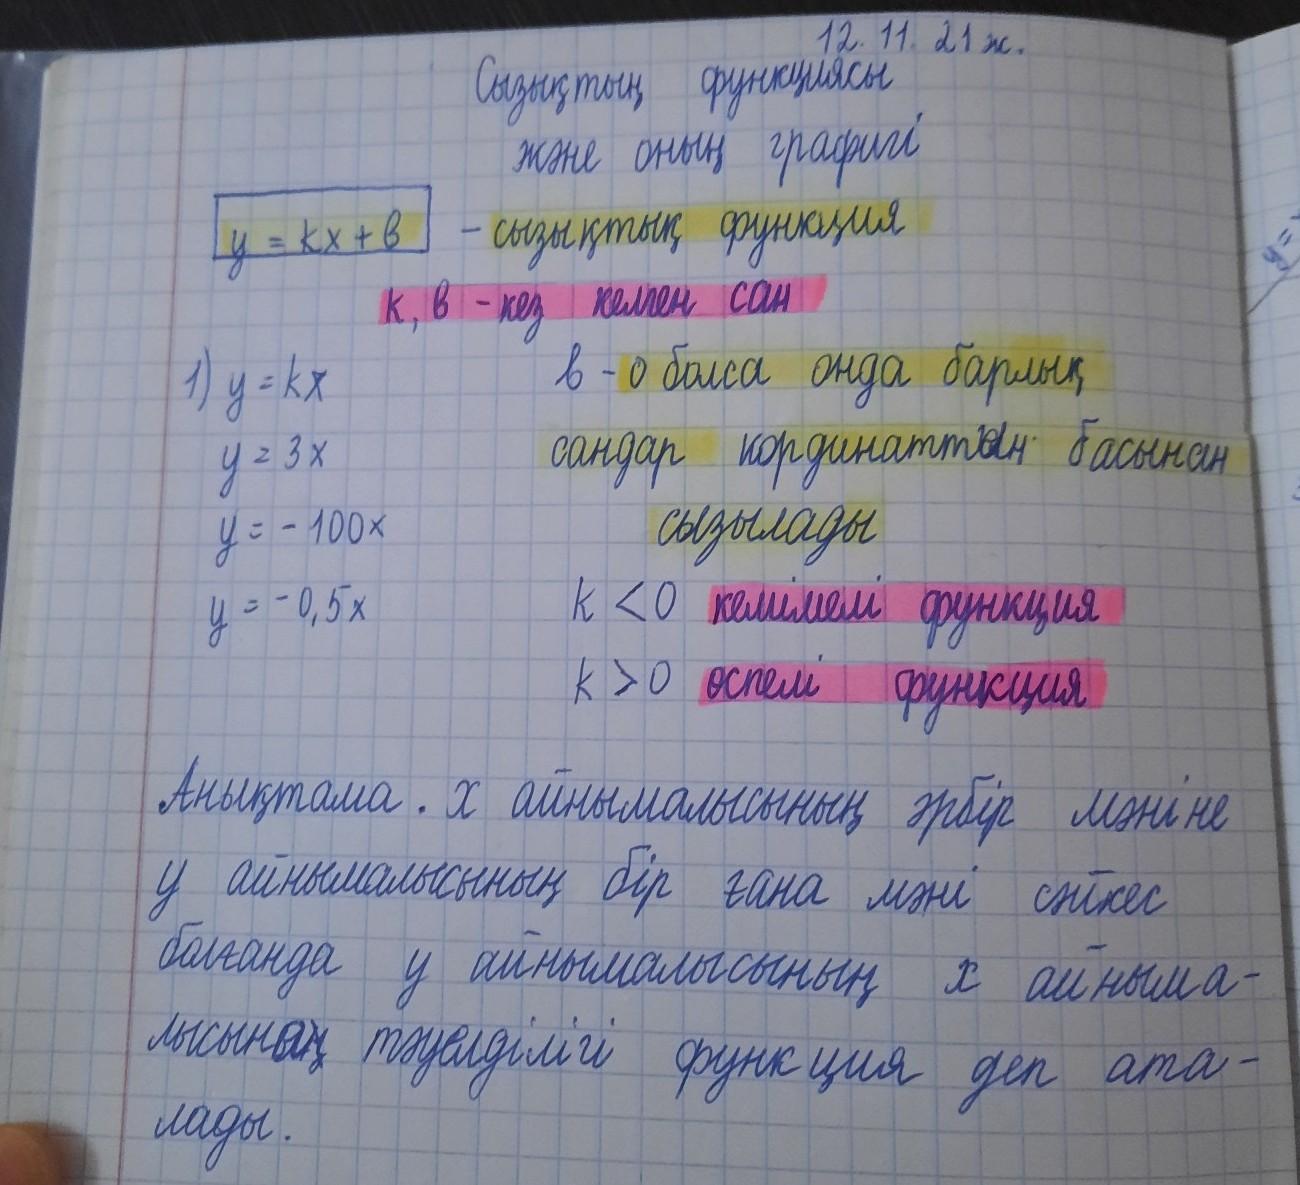 12. 11. 21 ж.
Сызықтың функциясы
және оның графигі
y = kx + b - сызықтық функция
k, b - кез келген сан
1) y = kx b - 0 болса онда барлық
y = 3x сандар кординаттын басынан
y = - 100x сызылады
y = -0,5x k < 0 кемімелі функция
k > 0 өспелі функция
Анықтама. х айнымалысының әрбір мәніне
у айнымалысының бір ғана мәні сәйкес
болғанда у айнымалысының х айныма-
лысының тәуелділігі функция деп ата-
лады.
y =